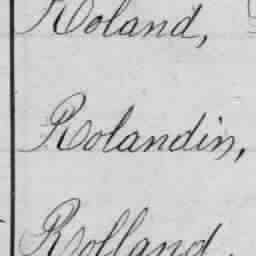 Roland,
Rolandin,
Rolland,